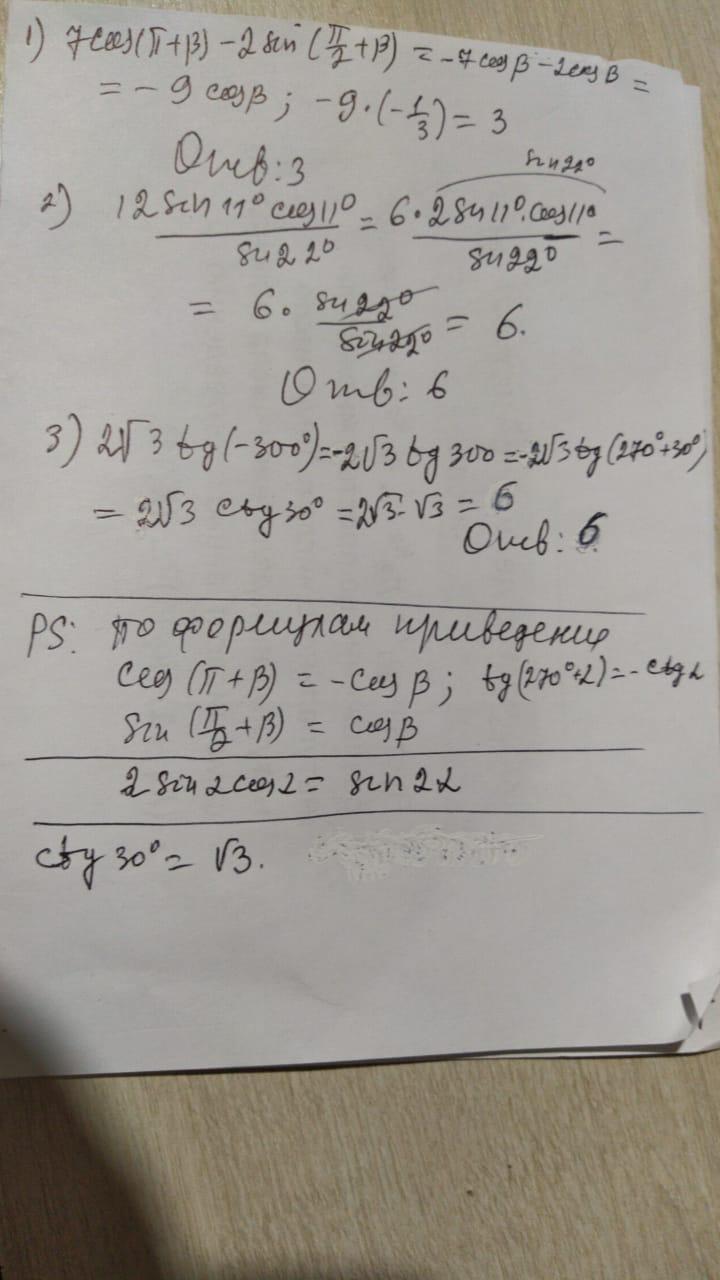 1) 7cos(π+β) - 2 sin (π/2 + β) = -7 cos β - 2cos β =
= - 9 cos β ; -9·(-1/3) = 3
Ответ: 3
sin 22°
2) 12 sin 11° cos 11° / sin 22° = 6 · 2 sin 11°·cos 11° / sin 22° =
= 6 · sin 22° / sin 22° = 6.
Ответ: 6
3) 2√3 tg(-300°) = -2√3 tg 300 = -2√3 tg(270°+30°)
= 2√3 ctg 30° = 2√3 · √3 = 6
Ответ: 6
PS: по формулам приведения
cos (π + β) = - cos β ; tg(270°+α) = - ctg α
sin (π/2 + β) = cos β
2 sin α cos α = sin 2α
ctg 30° = √3.